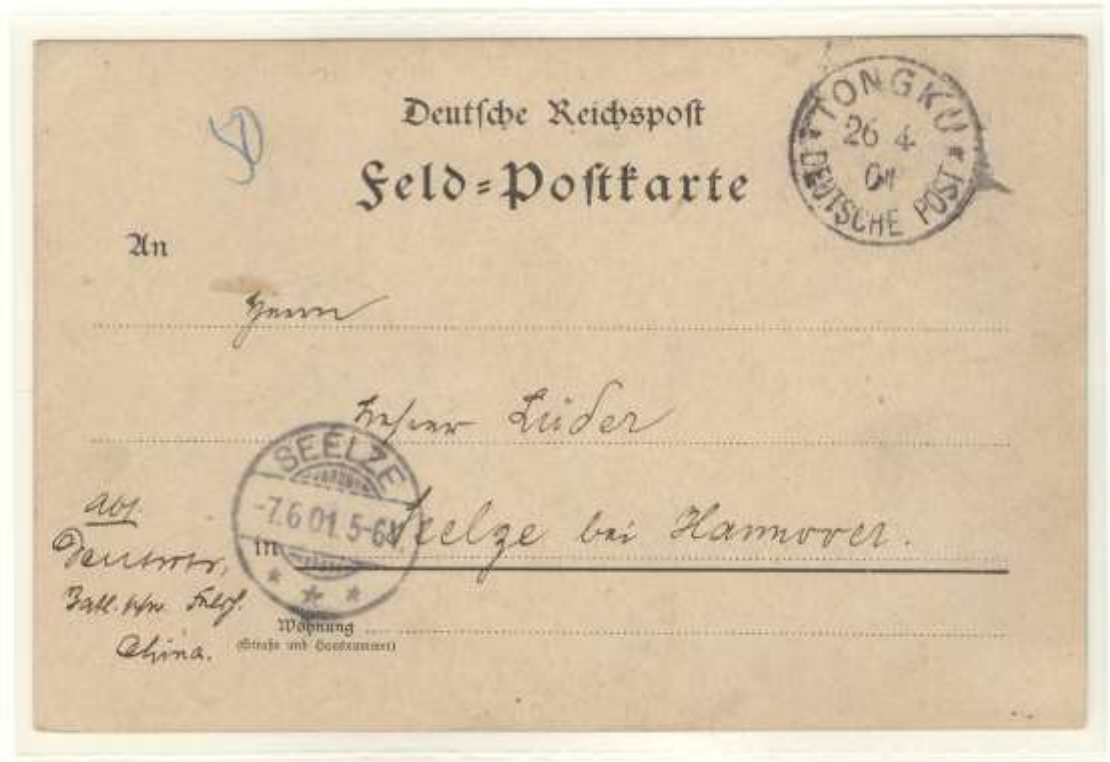 Deutsche Reichspost
Feld=Postkarte
TONGKU
26 4
01
DEUTSCHE POST
An
Herrn
Lehrer Lüder
SEELZE
-7.6 01. 5-6N.
in Seelze bei Hannover.
Abs.
China.
Wohnung
(Straße und Hausnummer)